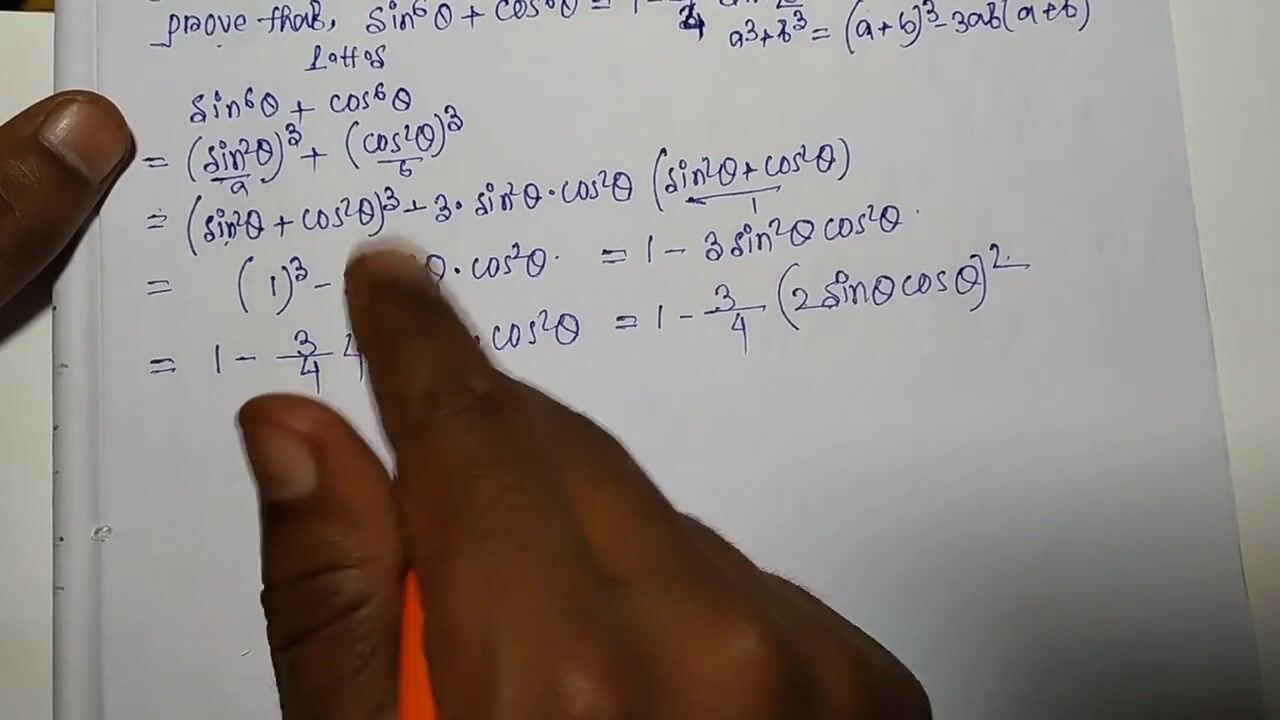 prove that, sin⁶θ + cos⁶θ = 1 -
a³+b³ = (a+b)³-3ab(a+b)
sin⁶θ + cos⁶θ
= (sin²θ)³ + (cos²θ)³
a b
= (sin²θ + cos²θ)³ - 3·sin²θ·cos²θ (sin²θ+cos²θ)
1
= (1)³ - θ·cos²θ· = 1 - 3sin²θcos²θ·
= 1 - 3/4 4 ·cos²θ = 1 - 3/4 (2sinθcosθ)²